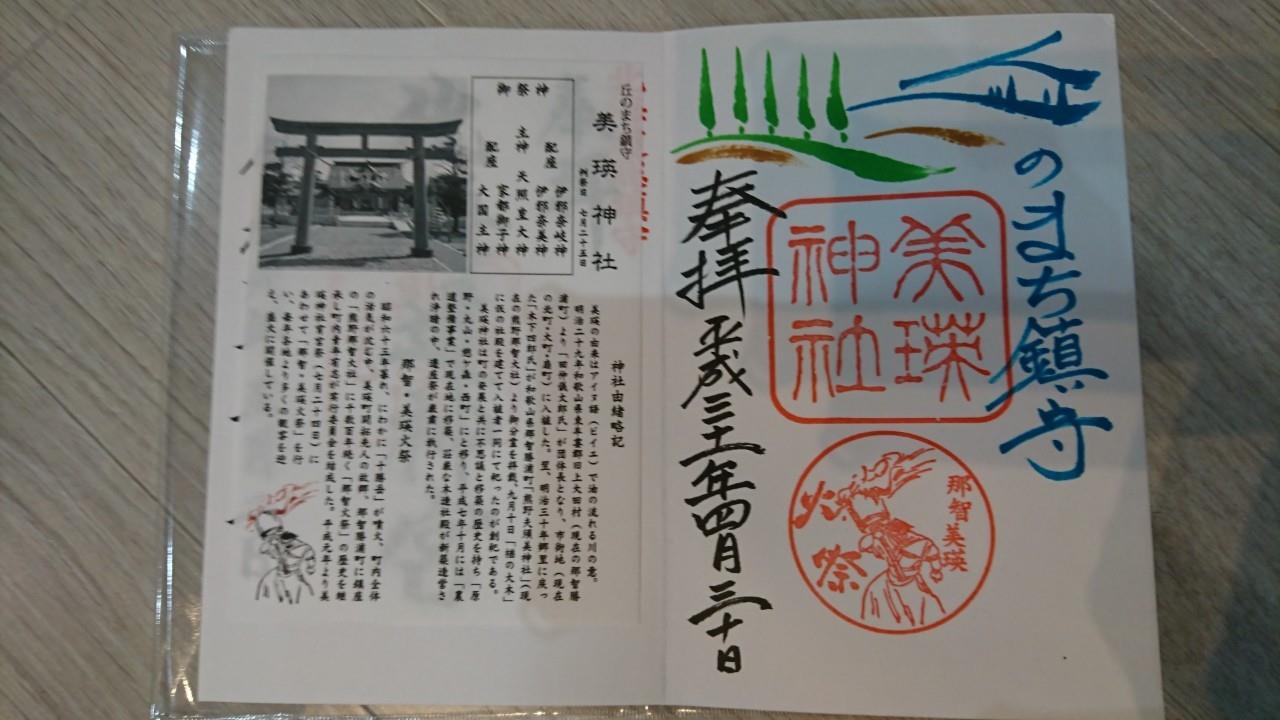 丘のまち鎮守
美瑛
神社
那智美瑛
火祭
奉拝 平成三十一年四月三十日
丘のまち鎮守
美瑛神社
例祭日 七月二十五日
御祭神
配座 伊邪奈岐神
伊邪奈美神
主神 天照皇大神
家都御子神
配座 大国主神
神社由緒略記
美瑛の由来はアイヌ語(ピイエ)で油の流れる川の意。
明治二十九年和歌山県東牟婁郡旧上大田村(現在の那智勝
浦町)より「田仲儀太郎氏」が団体長となり、市街地(現在
の北町・大町・扇町)に入植した。翌、明治三十年郷里に戻っ
た「木下四郎氏」が和歌山県那智勝浦町「熊野夫須美神社」(現
在の熊野那智大社)より御分霊を拝戴、九月十日「楢の大木」
に仮の社殿を建てて入植者一同にて祀ったのが創祀である。
美瑛神社は町の発展と共に不思議と移築の歴史を持ち「原
野・丸山・憩ヶ森・西町」にと移り、平成七年十月には「農
道整備事業」で現在地に移築、荘厳な木造社殿が新築造営さ
れ浄闇の中、遷座祭が厳粛に執行された。
那智・美瑛火祭
昭和六十三年暮れ、にわかに「十勝岳」が噴火、町内全体
の活気が沈む中、美瑛町開拓先人の故郷、那智勝浦町に鎮座
の「熊野那智大社」に千数百年続く「那智火祭」の歴史を継
承し町内青年有志が実行委員会を結成した。平成元年より美
瑛神社宵宮祭(七月二十四日)に
あわせて「那智・美瑛火祭」を行
い、毎年各地より多くの観客を迎
え、盛大に開催している。